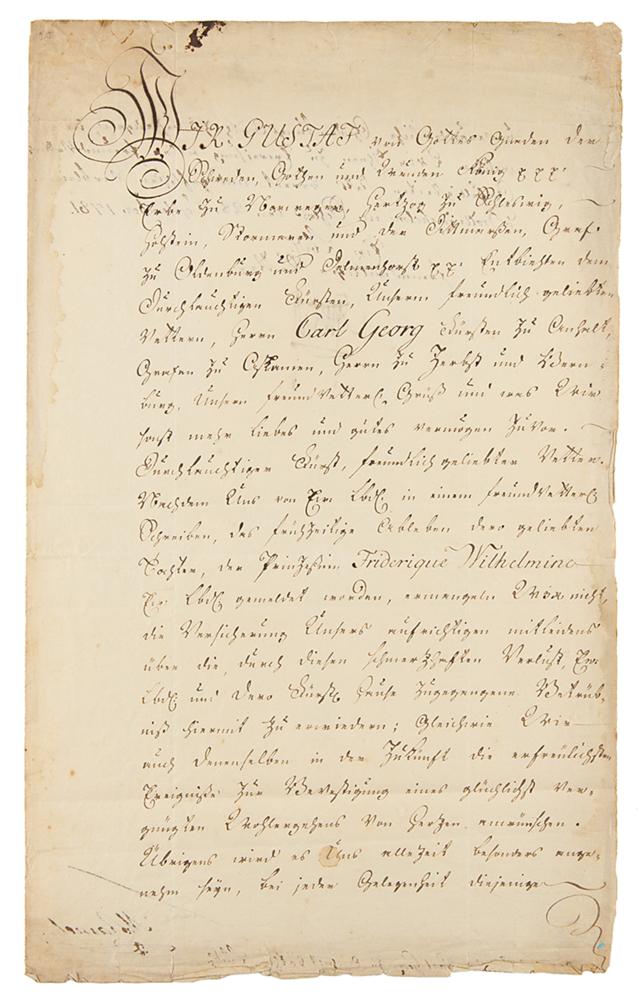 WIR GUSTAF von Gottes Gnaden der
Schweden, Gothen und Wenden König p.p.p.
Erbe zu Norwegen, Hertzog zu Schleswig,
Holstein, Stormaren und der Dittmarßen, Graf
zu Oldenburg und Delmenhorst p.p. Entbiethen dem
Durchlauchtigen Fürsten, Unserm freundlich geliebten
Vettern, Herrn Carl Georg Fürsten zu Anhalt,
Grafen zu Askanien, Herrn zu Zerbst und Bern-
burg, Unsern freundvetterl. Gruß und was Wir
sonst mehr liebes und gutes vermögen zuvor.
Durchlauchtiger Fürst, freundlich geliebter Vetter.
Nachdem Uns von Ew. Lbd. in einem freundvetterl.
Schreiben, das frühzeitige Ableben dero geliebten
Tochter, der Prinzeßin Friderique Wilhelmine
Ew. Lbd. gemeldet worden, ermangeln Wir nicht,
die Versicherung Unsers aufrichtigen mitleidens
über die, durch diesen schmertzhaften Verlust, Ew.
Lbd. und Dero Fürstl. Hause zugegangene Betrüb-
niß hiermit zu erwiedern; Gleichwie Wir
auch Denenselben in der Zukunft die erfreulichsten
Ereigniße zur Bevestigung eines glücklichst ver-
gnügten Wohlergehens von Hertzen anwünschen.
Übrigens wird es Uns allezeit besonders ange-
nehm seyn, bei jeder Gelegenheit diejenige